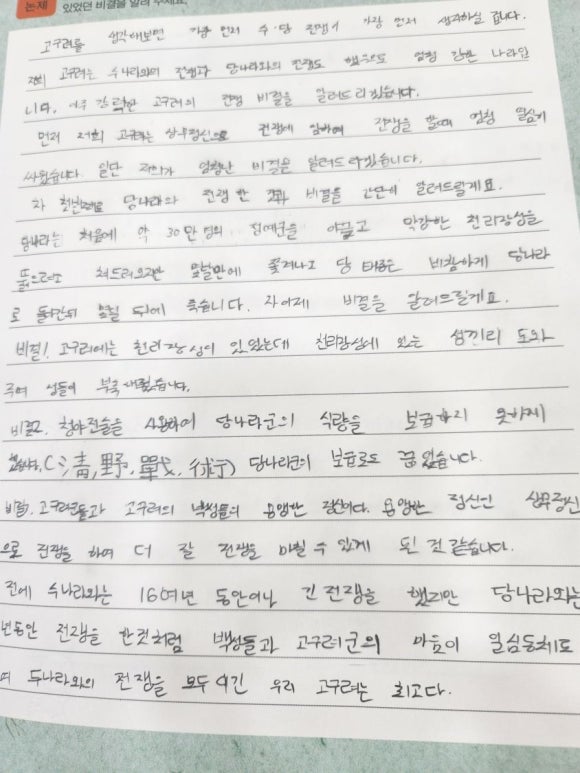 논제 있었던 비결을 알려 주세요.
고구려를 생각해보면 가장 먼저 수·당 전쟁이 가장 먼저 생각하실 겁니다.
저희 고구려는 수나라와의 전쟁과 당나라와의 전쟁도 했을으로 엄청 강한 나라입
니다. 아주 강력한 고구려의 전쟁 비결을 알려드리겠습니다.
먼저 저희 고구려는 상무정신으로 전쟁에 임하여 전쟁을 할때 엄청 열심히
싸웠습니다. 일단 저희가 엄청난 비결을 알려드리겠습니다.
자 첫번째로 당나라와 전쟁한 비결을 간단히 알려드릴게요.
당나라는 처음에 약 30만명의 정예군을 이끌고 막강한 천리장성을
뚫으려고 쳐드러오지만 몇달만에 쫓겨나고 당 태종은 비참하게 당나라
로 돌아간뒤 몇년 뒤에 죽습니다. 자이제 비결을 알려드릴게요.
비결1. 고구려에는 천리장성이 있었는데 천리장성에 있는 성끼리 도와
주며 성들이 부족 새웠습니다.
비결2. 청야전술을 사용하여 당나라군의 식량을 보급하지 못하게
(淸,野,戰,術) 당나라군의 보급로도 끊었습니다.
비결. 고구려군들과 고구려의 백성들의 용맹한 정신이다. 용맹한 정신인 상무정신
으로 전쟁을 하여 더 잘 전쟁을 마칠 수 있게 된 것 같습니다.
전에 수나라와는 16여년 동안이나 긴 전쟁을 했지만 당나라와는
년동안 전쟁을 한것처럼 백성들과 고구려군의 마음이 일심동체로
여 두나라와의 전쟁을 모두 이긴 우리 고구려는 최고다.